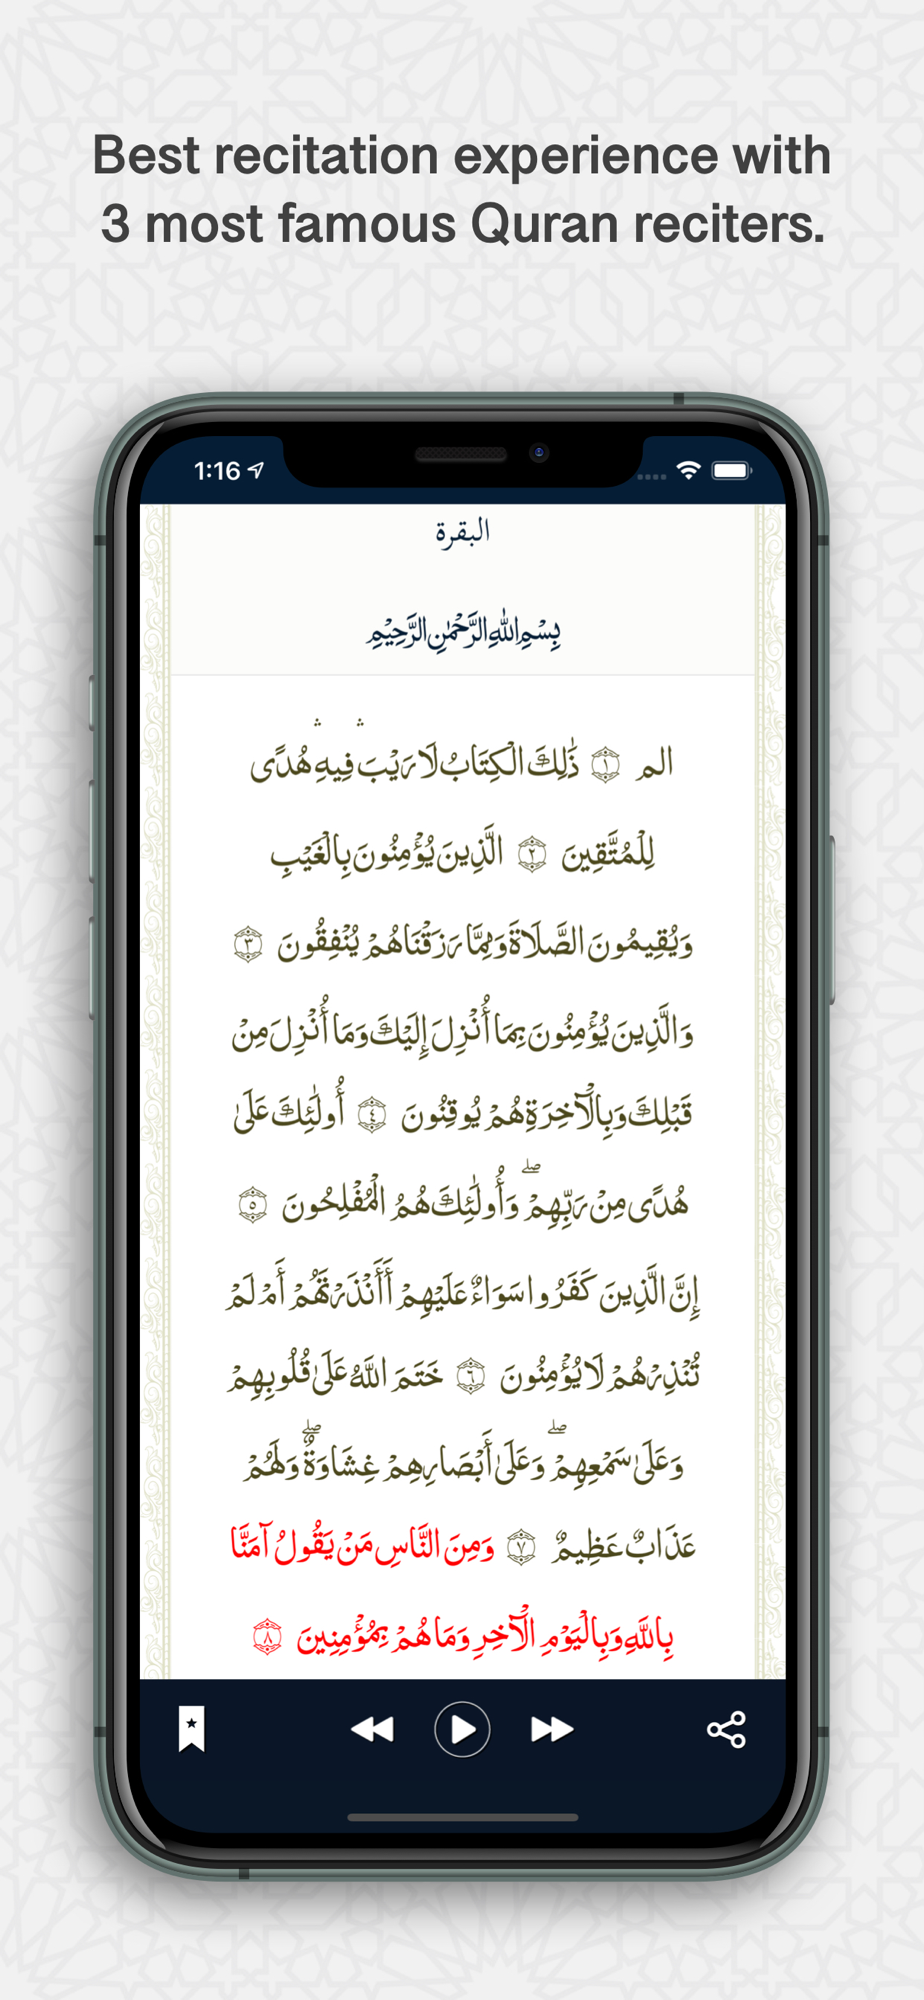 Best recitation experience with
3 most famous Quran reciters.
1:16
البقرة
بِسْمِ اللهِ الرَّحْمٰنِ الرَّحِيْمِ
الم ١ ذَٰلِكَ الْكِتَابُ لَا رَيْبَ ۛ فِيهِ ۛ هُدًى
لِلْمُتَّقِينَ ٢ الَّذِينَ يُؤْمِنُونَ بِالْغَيْبِ
وَيُقِيمُونَ الصَّلَاةَ وَمِمَّا رَزَقْنَاهُمْ يُنْفِقُونَ ٣
وَالَّذِينَ يُؤْمِنُونَ بِمَا أُنْزِلَ إِلَيْكَ وَمَا أُنْزِلَ مِنْ
قَبْلِكَ وَبِالْآخِرَةِ هُمْ يُوقِنُونَ ٤ أُولَٰئِكَ عَلَىٰ
هُدًى مِنْ رَبِّهِمْ ۖ وَأُولَٰئِكَ هُمُ الْمُفْلِحُونَ ٥
إِنَّ الَّذِينَ كَفَرُوا سَوَاءٌ عَلَيْهِمْ أَأَنْذَرْتَهُمْ أَمْ لَمْ
تُنْذِرْهُمْ لَا يُؤْمِنُونَ ٦ خَتَمَ اللَّهُ عَلَىٰ قُلُوبِهِمْ
وَعَلَىٰ سَمْعِهِمْ ۖ وَعَلَىٰ أَبْصَارِهِمْ غِشَاوَةٌ ۖ وَلَهُمْ
عَذَابٌ عَظِيمٌ ٧ وَمِنَ النَّاسِ مَنْ يَقُولُ آمَنَّا
بِاللَّهِ وَبِالْيَوْمِ الْآخِرِ وَمَا هُمْ بِمُؤْمِنِينَ ٨